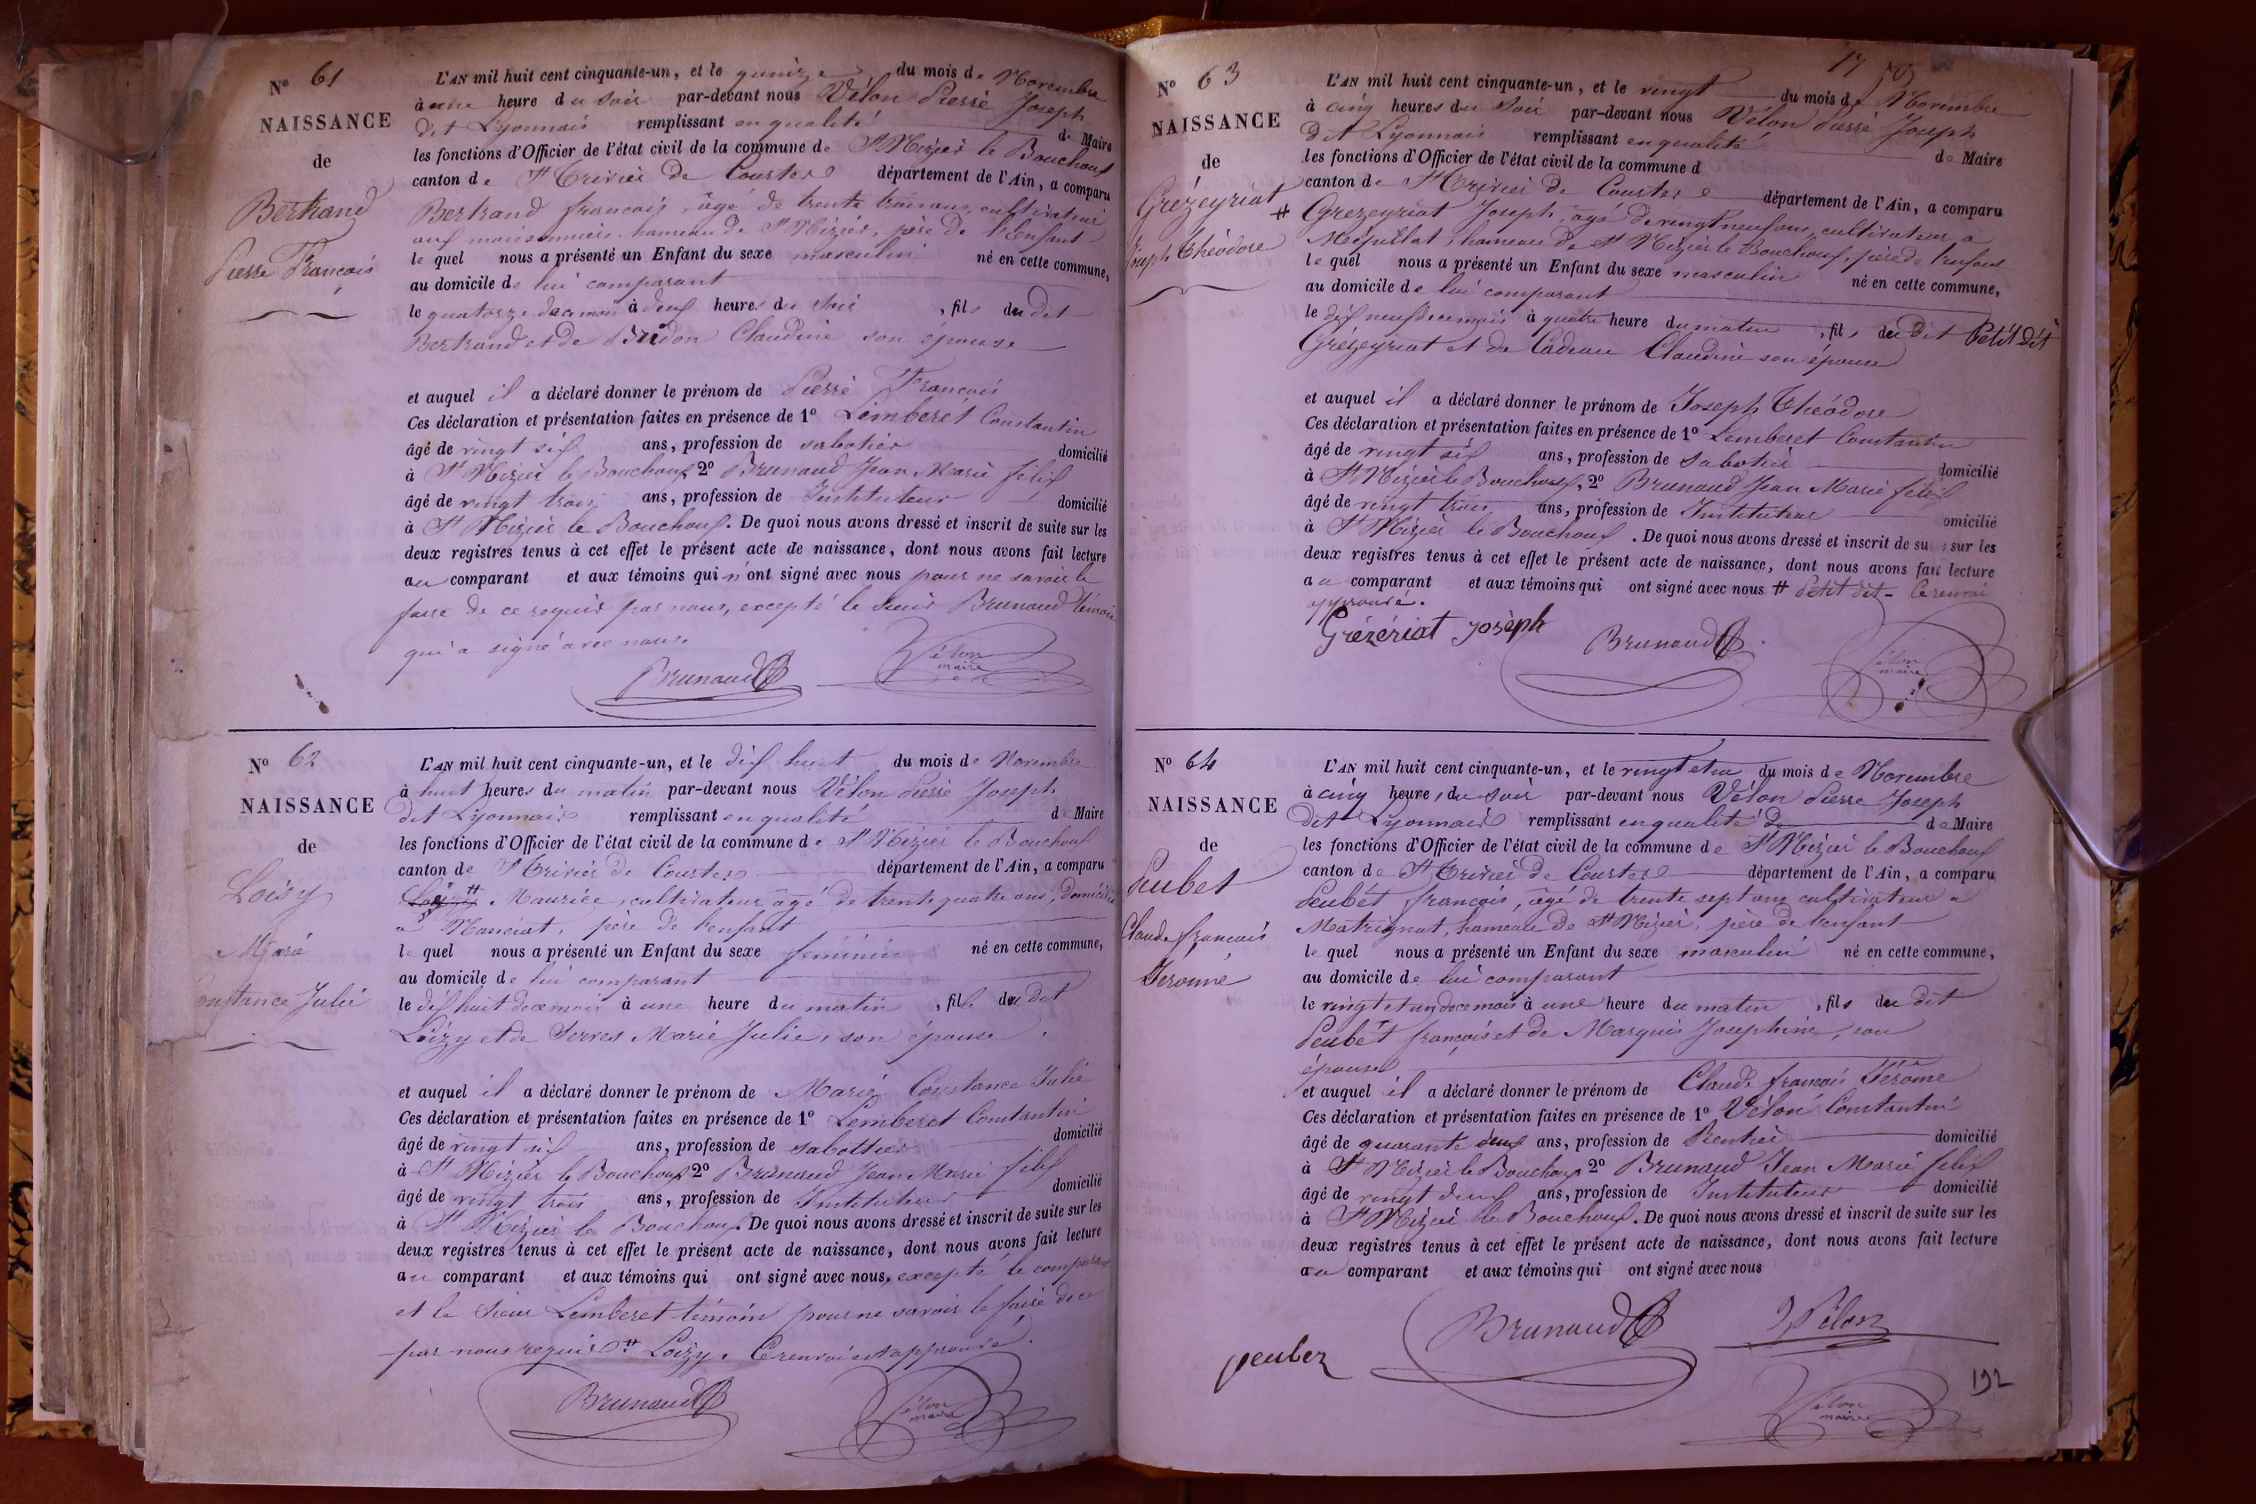 N° 61
NAISSANCE
de
Bertrand
Pierre François
L'AN mil huit cent cinquante-un, et le quinze du mois de Novembre
à une heure du soir par-devant nous Vélon Pierre Joseph
dit Lyonnais remplissant en qualité de Maire
les fonctions d'Officier de l'état civil de la commune de St Nizier le Bouchoux
canton de St Trivier de Courtes département de l'Ain, a comparu
Bertrand françois, âgé de trente trois ans, cultivateur
aux maisonnues hameau de St Nizier, père de l'enfant
le quel nous a présenté un Enfant du sexe masculin né en cette commune,
au domicile de lui comparant
le quatorze de ce mois à deux heures du soir, fils du dit
Bertrand et de Claudine son épouse
et auquel il a déclaré donner le prénom de Pierre François
Ces déclaration et présentation faites en présence de 1° Lemberet Constantin
âgé de vingt six ans, profession de sabotier domicilié
à St Nizier le Bouchoux 2° Brunaud Jean Marie félix
âgé de vingt trois ans, profession de Instituteur domicilié
à St Nizier le Bouchoux. De quoi nous avons dressé et inscrit de suite sur les
deux registres tenus à cet effet le présent acte de naissance, dont nous avons fait lecture
au comparant et aux témoins qui n'ont signé avec nous pour ne savoir le
faire de ce requis par nous, excepté le sieur Brunaud témoin
qui a signé avec nous.
Brunaud
Vélon
maire
N° 62
NAISSANCE
de
Loisy
Marie
Constance Julie
L'AN mil huit cent cinquante-un, et le dix huit du mois de Novembre
à huit heures du matin par-devant nous Vélon Pierre Joseph
dit Lyonnais remplissant en qualité de Maire
les fonctions d'Officier de l'état civil de la commune de St Nizier le Bouchoux
canton de St Trivier de Courtes département de l'Ain, a comparu
# Maurice, cultivateur âgé de trente quatre ans, domicilié
à Manciat, père de l'enfant
le quel nous a présenté un Enfant du sexe féminin né en cette commune,
au domicile de lui comparant
le dix huit de ce mois à une heure du matin, fille du dit
Loizy et de Serres Marie Julie, son épouse.
et auquel il a déclaré donner le prénom de Marie Constance Julie
Ces déclaration et présentation faites en présence de 1° Lemberet Constantin
âgé de vingt six ans, profession de sabottier domicilié
à St Nizier le Bouchoux 2° Brunaud Jean Marie félix
âgé de vingt trois ans, profession de Instituteur domicilié
à St Nizier le Bouchoux De quoi nous avons dressé et inscrit de suite sur les
deux registres tenus à cet effet le présent acte de naissance, dont nous avons fait lecture
au comparant et aux témoins qui ont signé avec nous, excepté le comparant
et le sieur Lemberet témoin pour ne savoir le faire de ce
par nous requis # Loizy. Ce renvoi est approuvé.
Brunaud
Vélon
maire
17
N° 63
NAISSANCE
de
Grézeyriat
#
Joseph Théodore
L'AN mil huit cent cinquante-un, et le vingt du mois de Novembre
à cinq heures du soir par-devant nous Vélon Pierre Joseph
dit Lyonnais remplissant en qualité de Maire
les fonctions d'Officier de l'état civil de la commune d
canton de St Trivier de Courtes département de l'Ain, a comparu
Grezeyriat Joseph, âgé de vingt neuf ans, cultivateur à
Mépillat, hameau de St Nizier le Bouchoux, père de l'enfant
le quel nous a présenté un Enfant du sexe masculin né en cette commune,
au domicile de lui comparant
le dix neuf de ce mois à quatre heure du matin, fils du dit Petit dit
Grézeyriat et de Cadeau Claudine son épouse
et auquel il a déclaré donner le prénom de Joseph Théodore
Ces déclaration et présentation faites en présence de 1° Lemberet Constantin
âgé de vingt six ans, profession de sabotier domicilié
à St Nizier le Bouchoux, 2° Brunaud Jean Marie félix
âgé de vingt trois ans, profession de Instituteur omicilié
à St Nizier le Bouchoux. De quoi nous avons dressé et inscrit de su sur les
deux registres tenus à cet effet le présent acte de naissance, dont nous avons fait lecture
au comparant et aux témoins qui ont signé avec nous # Petit dit - Ce renvoi
approuvé.
Grézériat Joséph
Brunaud
Vélon
maire
N° 64
NAISSANCE
de
Peubet
Claude françois
Jerome
L'AN mil huit cent cinquante-un, et le vingt et un du mois de Novembre
à cinq heures du soir par-devant nous Vélon Pierre Joseph
dit Lyonnais remplissant en qualité de de Maire
les fonctions d'Officier de l'état civil de la commune de St Nizier le Bouchoux
canton de St Trivier de Courtes département de l'Ain, a comparu
Peubet françois, âgé de trente sept ans cultivateur à
Matrignat, hameau de St Nizier, père de l'enfant
le quel nous a présenté un Enfant du sexe masculin né en cette commune,
au domicile de lui comparant
le vingt et un de ce mois à une heure du matin, fils du dit
Peubet françois et de Marquis Josephine, son
épouse
et auquel il a déclaré donner le prénom de Claude françois Jérôme
Ces déclaration et présentation faites en présence de 1° Vélon Constantin
âgé de quarante deux ans, profession de Rentier domicilié
à St Nizier le Bouchoux 2° Brunaud Jean Marie félix
âgé de vingt deux ans, profession de Instituteur domicilié
à St Nizier le Bouchoux. De quoi nous avons dressé et inscrit de suite sur les
deux registres tenus à cet effet le présent acte de naissance, dont nous avons fait lecture
au comparant et aux témoins qui ont signé avec nous
Brunaud
Vélon
peubez
192
Vélon
maire